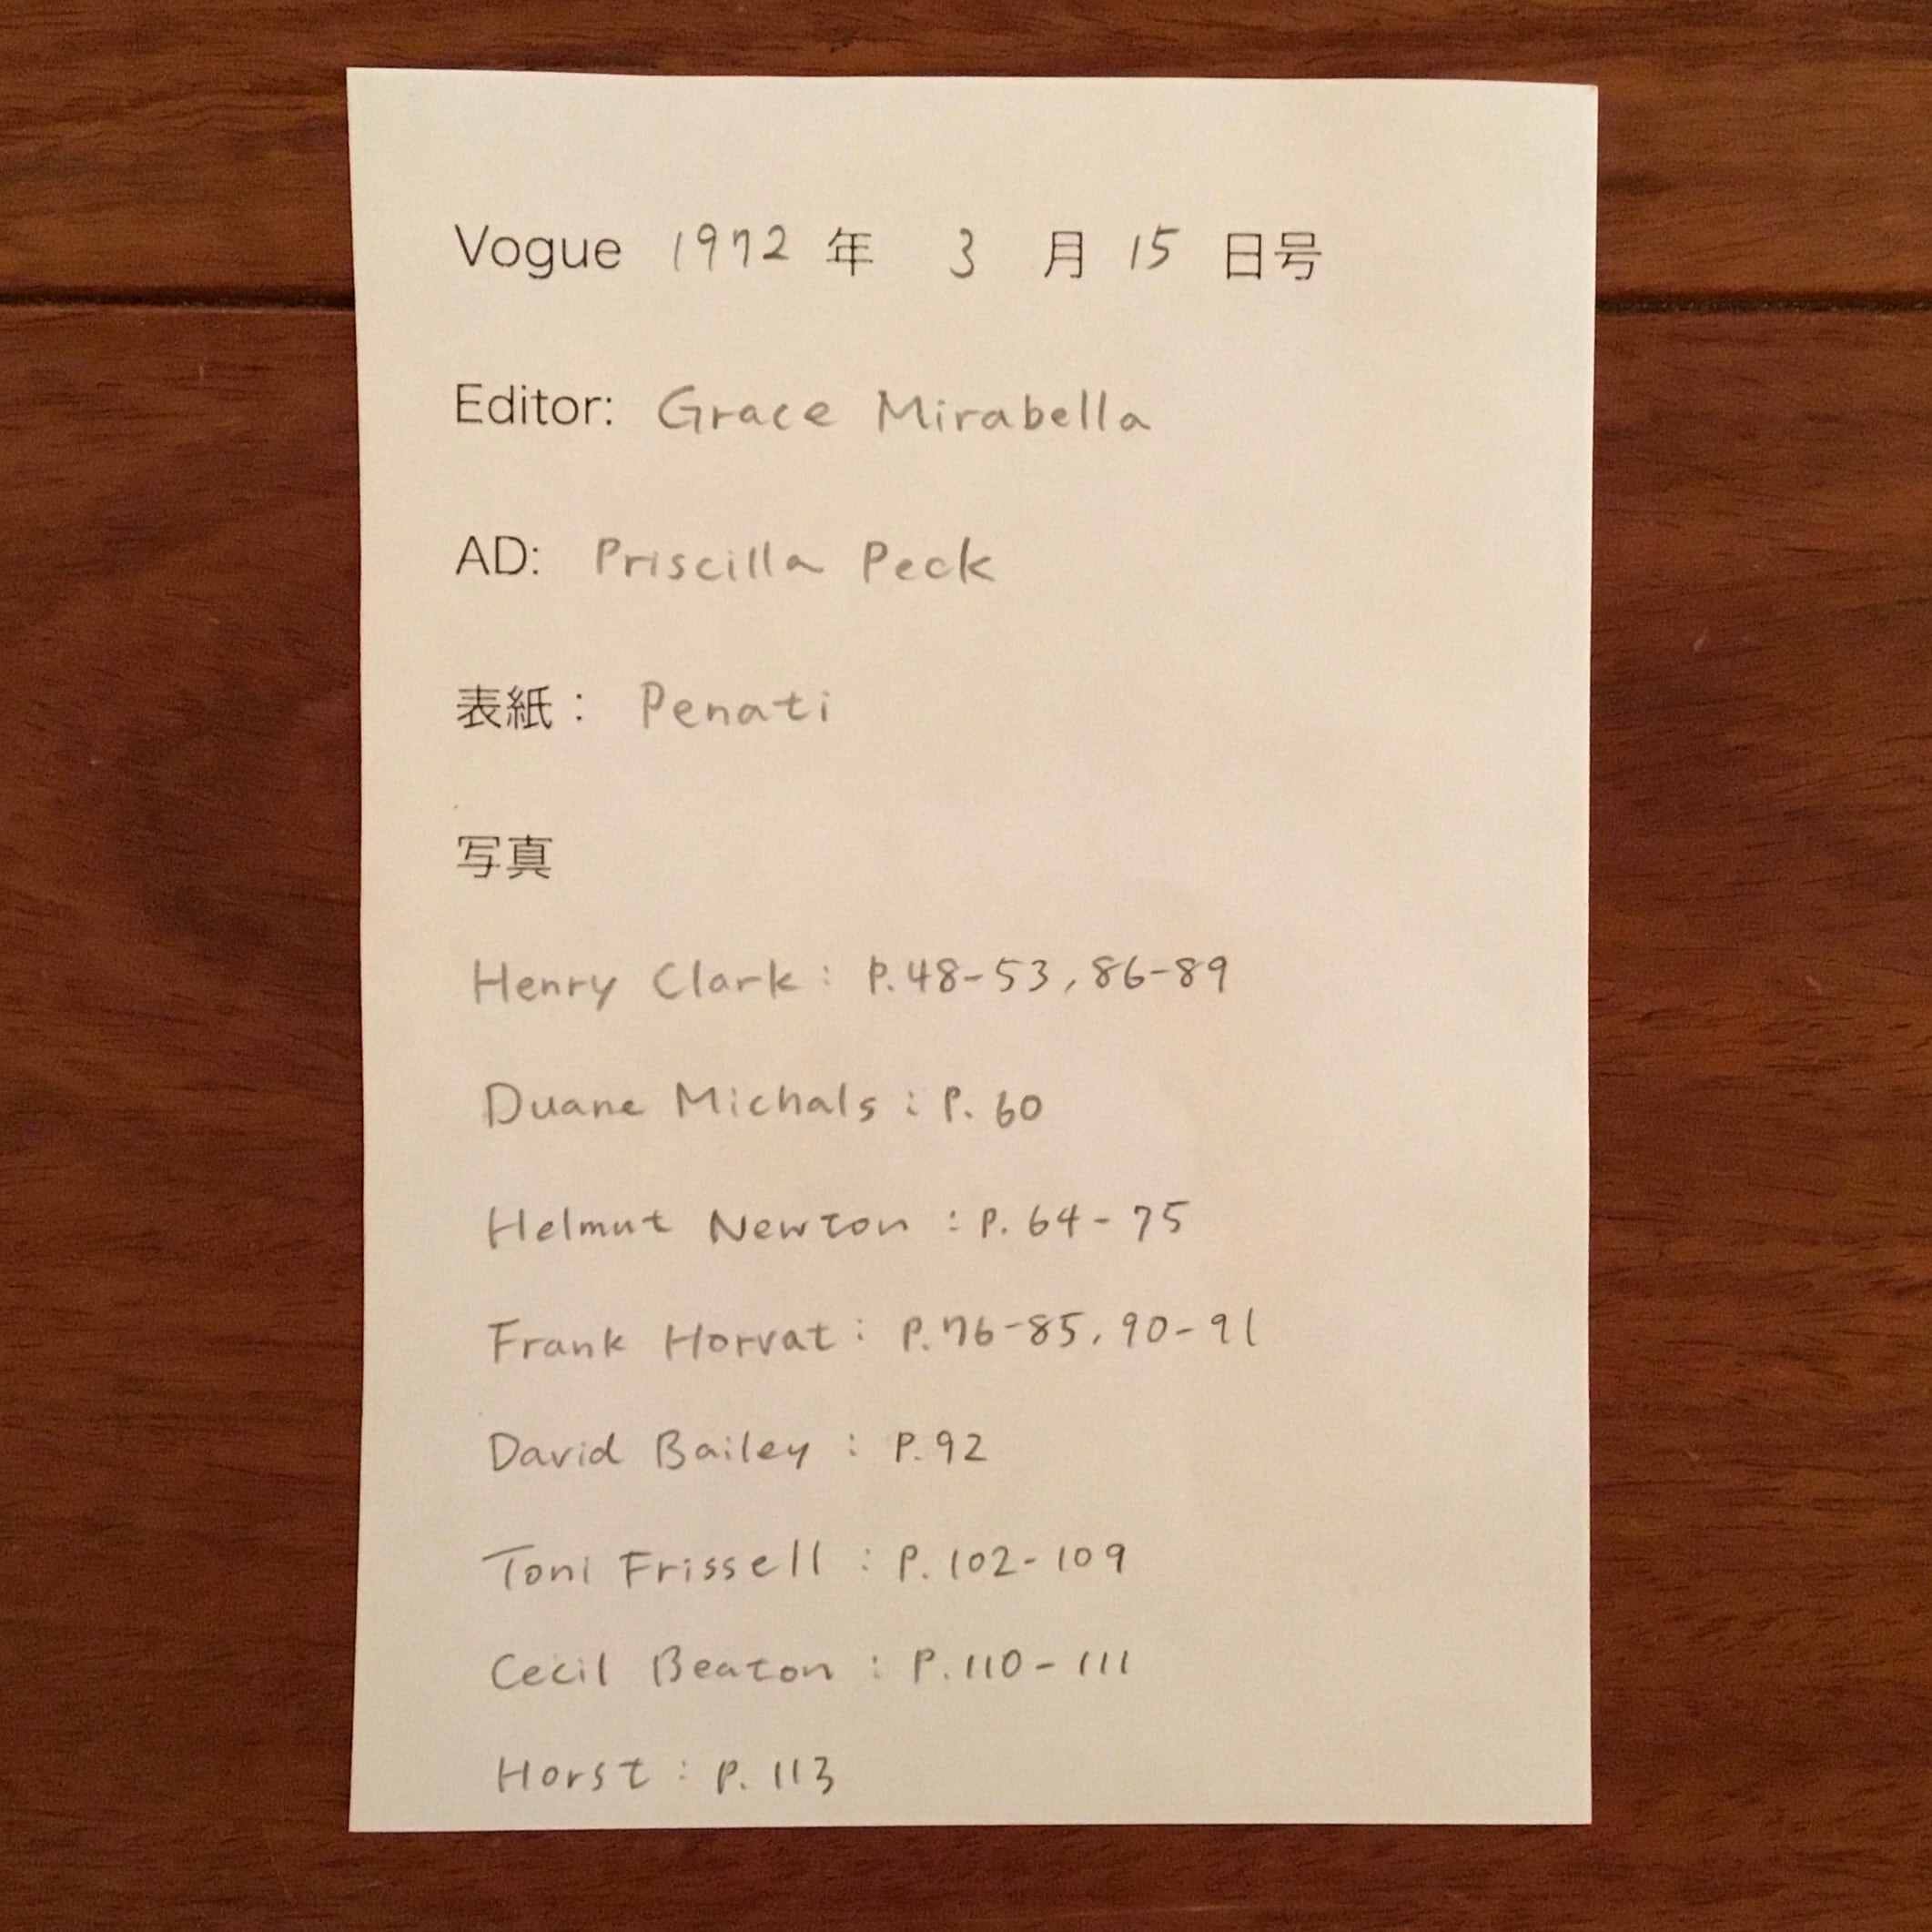 Vogue 1972 年 3 月 15 日号
Editor: Grace Mirabella
AD: Priscilla Peck
表紙： Penati
写真
Henry Clark : P.48-53, 86-89
Duane Michals : P. 60
Helmut Newton : P. 64-75
Frank Horvat : P.76-85, 90-91
David Bailey : P.92
Toni Frissell : P. 102-109
Cecil Beaton : P.110-111
Horst : P. 113